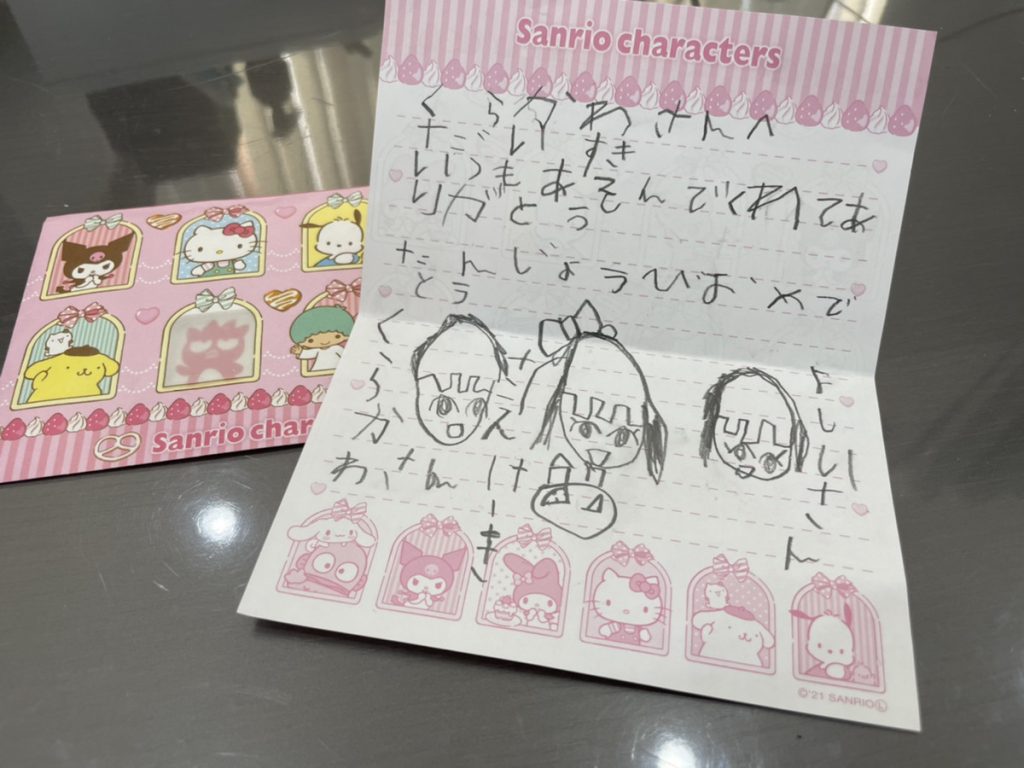 Sanrio characters
くらかわさんへ
だいすき
いつもあそんでくれてあ
りがとう
たんじょうびおめで
とう
くらかわさん
けーき
よししさん
Sanrio char
©'21 SANRIO Ⓛ